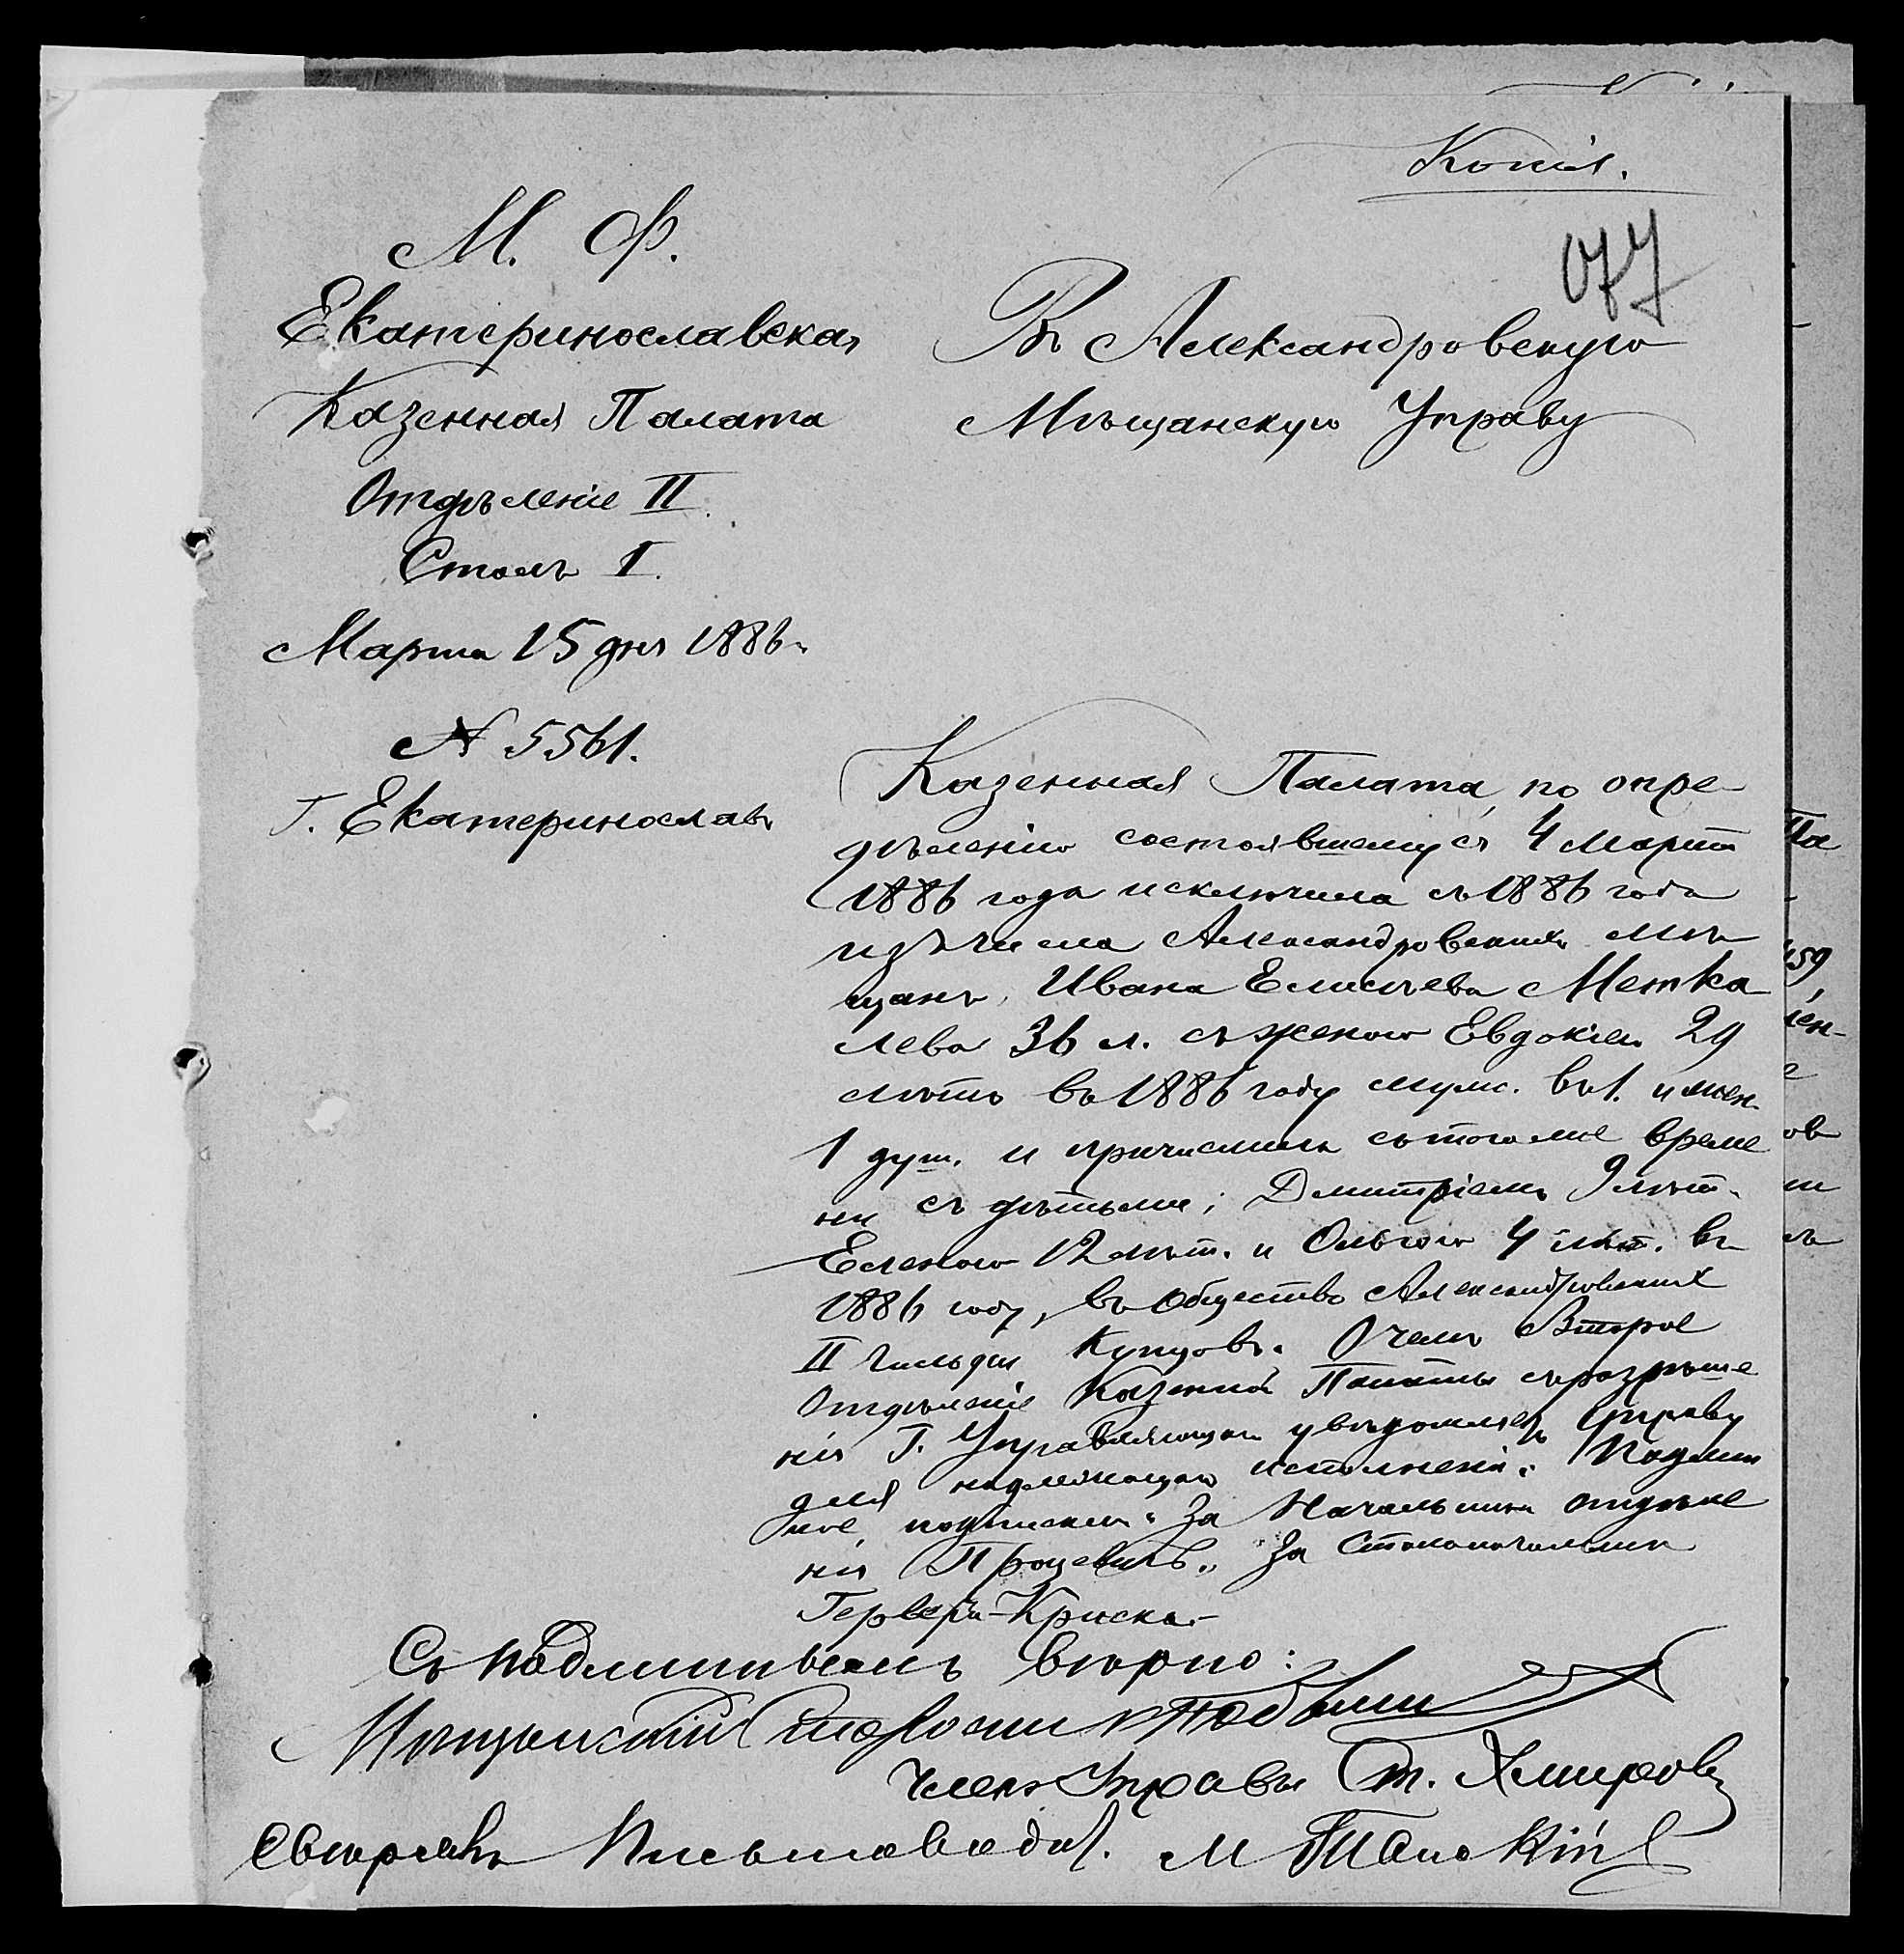 Копія.
077
М. Ф.
Екатеринославская
Казенная Палата
Отдѣленіе II.
Столъ I.
Марта 15 дня 1886 г.
№ 5561.
Г. Екатеринославъ
Въ Александровскую
Мѣщанскую Управу
Казенная Палата, по опре-
дѣленію состоявшемуся 4 Марта
1886 года исключила съ 1886 года
изъ числа Александровскихъ мѣ
щанъ, Ивана Елисѣева Метка
лева 36 л. съ женою Евдокіею 29
лѣтъ въ 1886 году муж. въ 1. и жен.
1 душ. и причислила съ того же време
ни съ дѣтьми; Дмитріемъ 9 лѣт.
Еленою 12 лѣт. и Ольгою 4 лѣт. въ
1886 году, въ общество Александровскихъ
II гильдіи Купцовъ. О чемъ Второе
Отдѣленіе Казенной Палаты съ разрѣше
нія Г. Управляющаго увѣдомляетъ Управу
для надлежащаго исполненія. Подлин
ное подписали: За Начальника отдѣле
нія За Столоначальника
Съ подлиннымъ вѣрно:
Мѣщанскій Староста
Членъ Управы Ст. Хмировъ
Свѣрялъ Письмовод. М
Па
459,
лен-
е
ов